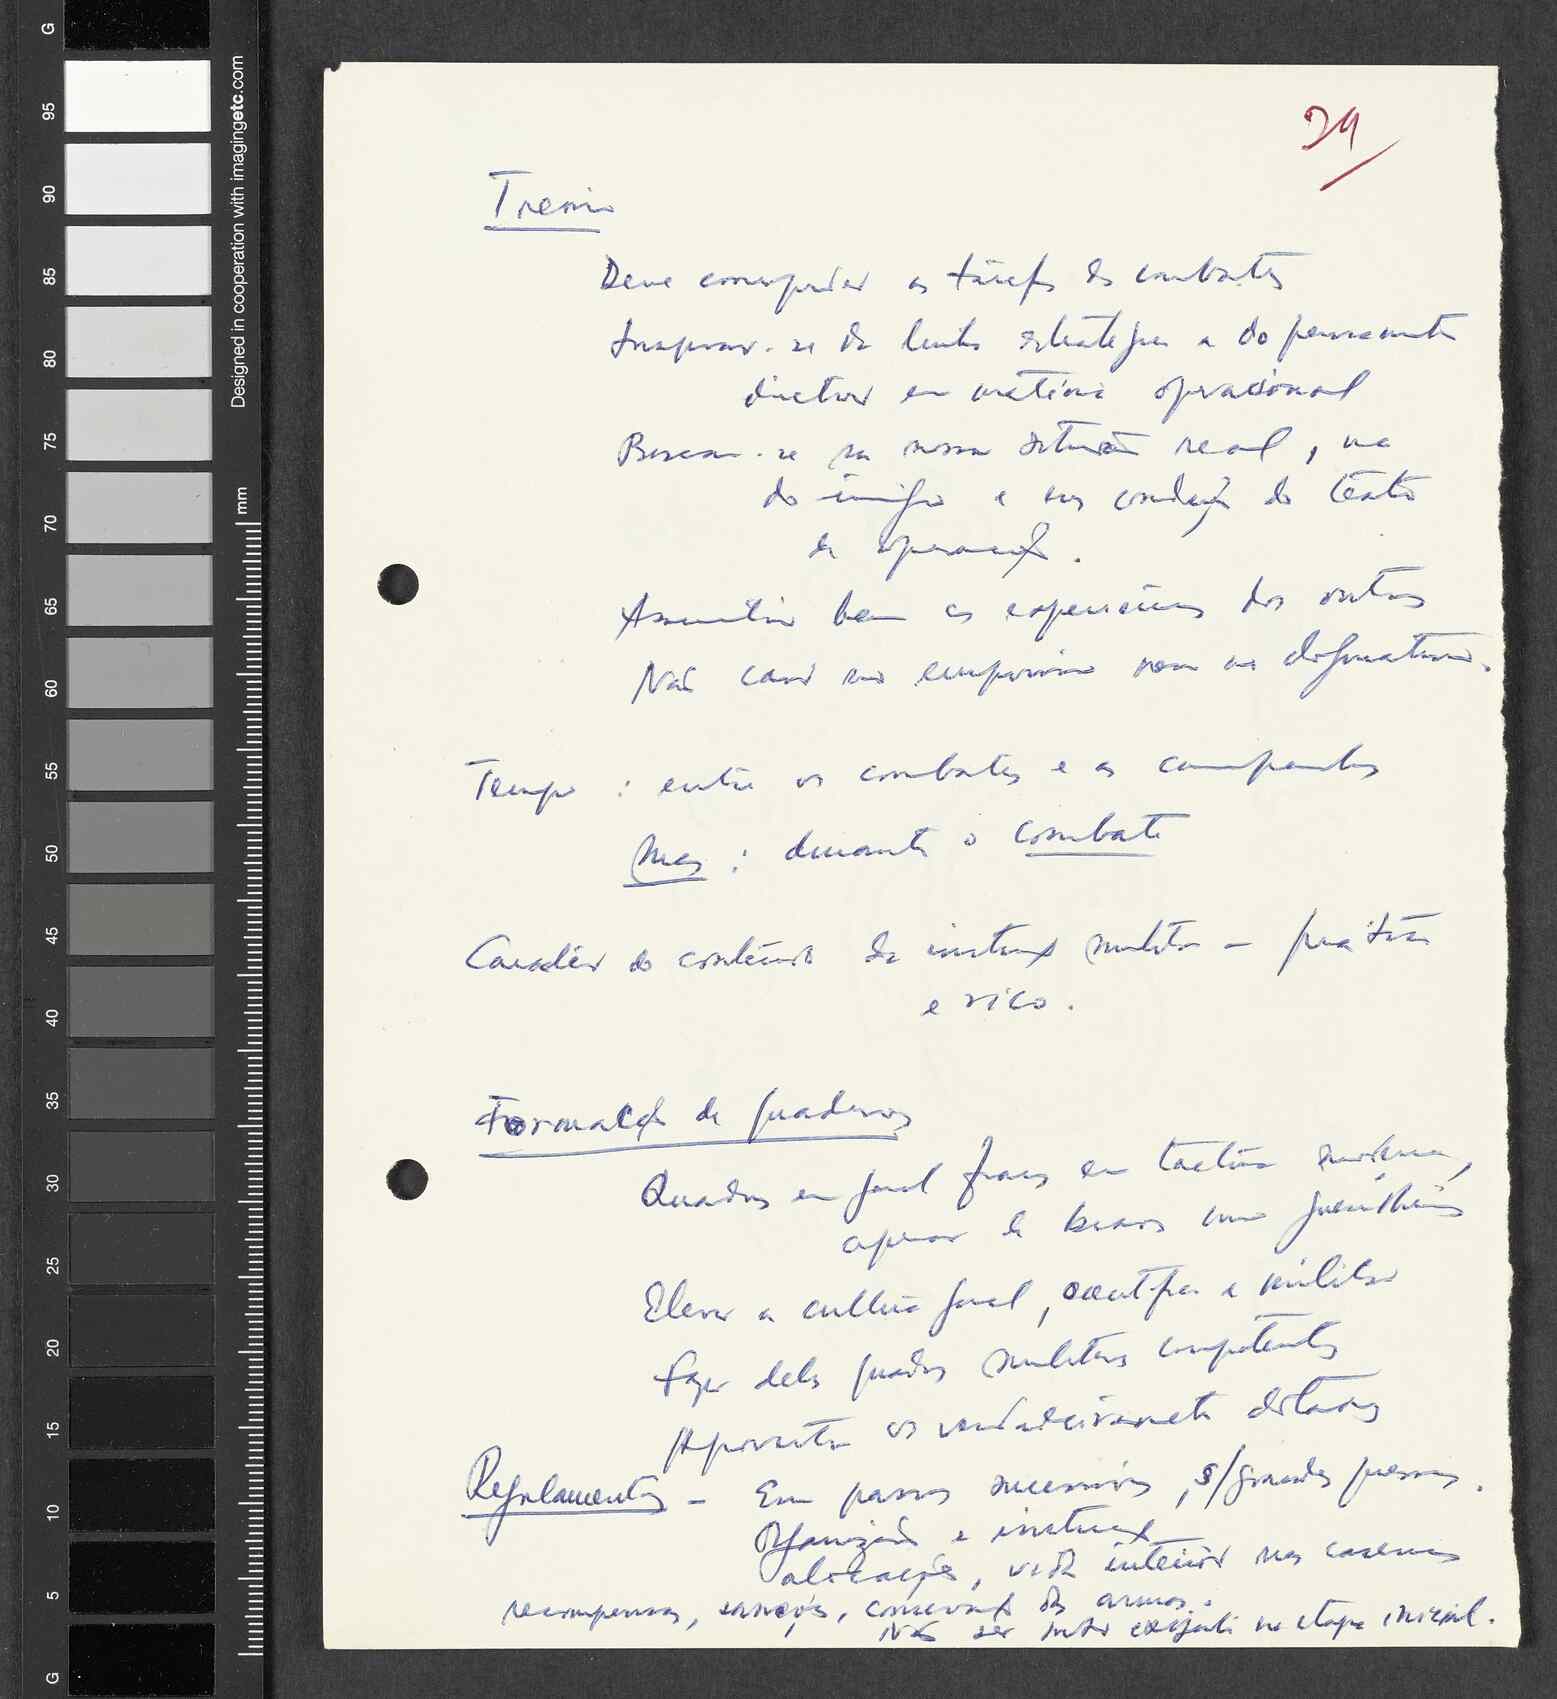 G
95
90
85
80
75
70
65
60
55
50
45
40
35
30
25
20
15
10
5
G
Designed in cooperation with imagingetc.com
mm
Treino
Deve corresponder às tarefas de combates
Inspirar-se da linha estratégica e do pensamento
director em matéria operacional
Basear-se na nossa situação real, na
do inimigo e nas condições do teatro
de operações.
Assimilar bem as experiências dos outros
Não cair no empirismo nem no dogmatismo.
Tempo : entre os combates e as campanhas
Mas : durante o combate
Carácter do conteúdo da instrução militar – prático
e rico.
Formação de quadros
Quadros em geral fracos em táctica moderna,
apesar de bravos como guerrilheiros
Elevar a cultura geral, científica e militar
Fazer deles quadros militares competentes
Aproveitar os verdadeiramente dotados
Regulamentos – Em passos sucessivos, s/grandes pressas.
Organização e instrução
alocações, vida interior nas casernas
recompensas, sanções, conservação das armas.
Não ser muito exigente na etapa inicial.